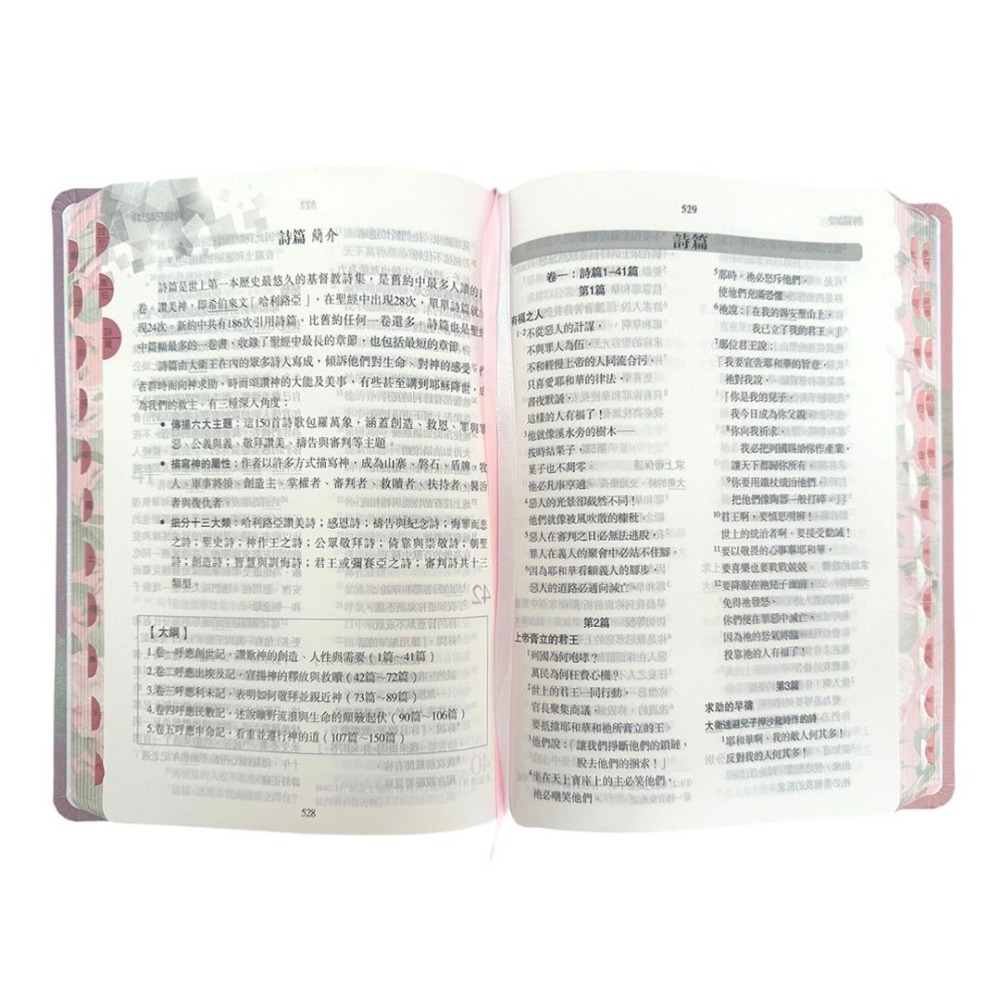 詩篇 簡介
詩篇是世上第一本歷史最悠久的基督教詩集，是舊約中最多人讀的
卷。讚美神，即希伯來文「哈利路亞」，在聖經中出現28次，單單詩篇就
現24次。新約中共有186次引用詩篇，比舊約任何一卷還多。詩篇也是聖
中篇幅最多的一卷書，收錄了聖經中最長的章節，也包括最短的章節。
詩篇由大衛王在內的眾多詩人寫成，傾訴他們對生命、對神的感受
者群時而向神求助，時而頌讚神的大能及美事，有些甚至講到耶穌降世，成
為我們的救主。有三種深入角度：
• 傳揚六大主題：這150首詩歌包羅萬象，涵蓋創造、救恩、罪與
惡、公義與義、敬拜讚美、禱告與審判等主題。
• 描寫神的屬性：作者以許多方式描寫神，成為山寨、磐石、盾牌、牧
人、軍事將領、創造主、掌權者、審判者、救贖者、扶持者、醫治
者與復仇者。
• 細分十三大類：哈利路亞讚美詩；感恩詩；禱告與紀念詩；悔罪而悲
之詩；聖史詩；神作王之詩；公眾敬拜詩；倚靠與崇敬詩；朝聖
詩；創造詩；智慧與訓誨詩；君王或彌賽亞之詩；審判詩共十三
類型。
【大綱】
1.卷一呼應創世記，讚歎神的創造、人性與需要（1篇～41篇）
2.卷二呼應出埃及記，宣揚神的釋放與救贖（42篇～72篇）
3.卷三呼應利未記，表明如何敬拜並親近神（73篇～89篇）
4.卷四呼應民數記，述說曠野流浪與生命的顛簸起伏（90篇～106篇）
5.卷五呼應申命記，看重並遵行神的道（107篇～150篇）
528
529
詩篇
卷一：詩篇1–41篇
第1篇
有福之人
1-2不從惡人的計謀，
不與罪人為伍，
不和輕慢上帝的人同流合污，
只喜愛耶和華的律法，
晝夜默誦，
這樣的人有福了！
3他就像溪水旁的樹木——
按時結果子，
葉子也不凋零。
他必凡事亨通。
4惡人的光景卻截然不同！
他們就像被風吹散的糠秕。
5惡人在審判之日必無法逃脫，
罪人在義人的聚會中必站不住腳。
6因為耶和華看顧義人的腳步，
惡人的道路必通向滅亡。
第2篇
上帝膏立的君王
1列國為何咆哮？
萬民為何枉費心機？
2世上的君王一同行動，
官長聚集商議，
要抵擋耶和華和祂所膏立的王。
3他們說：「讓我們掙斷他們的鎖鏈，
脫去他們的捆索！」
4坐在天上寶座上的主必笑他們，
祂必嘲笑他們。
5那時，祂必怒斥他們，
使他們充滿恐懼。
6祂說：「在我的錫安聖山上，
我已立了我的君王。」
7那位君王說：
「我要宣告耶和華的旨意，
祂對我說，
『你是我的兒子，
我今日成為你父親。
8你向我祈求，
我必把列國賜給你作產業，
讓天下都歸你所有。
9你要用鐵杖統治他們，
把他們像陶器一般打碎。』」
10君王啊，要慎思明辨！
世上的統治者啊，要接受勸誡！
11要以敬畏的心事奉耶和華，
要喜樂也要戰戰兢兢。
12要降服在祂兒子面前，
免得祂發怒，
你們便在罪惡中滅亡，
因為祂的怒氣將臨。
投靠祂的人有福了！
第3篇
求助的早禱
大衛逃避兒子押沙龍時作的詩
1耶和華啊，我的敵人何其多！
反對我的人何其多！